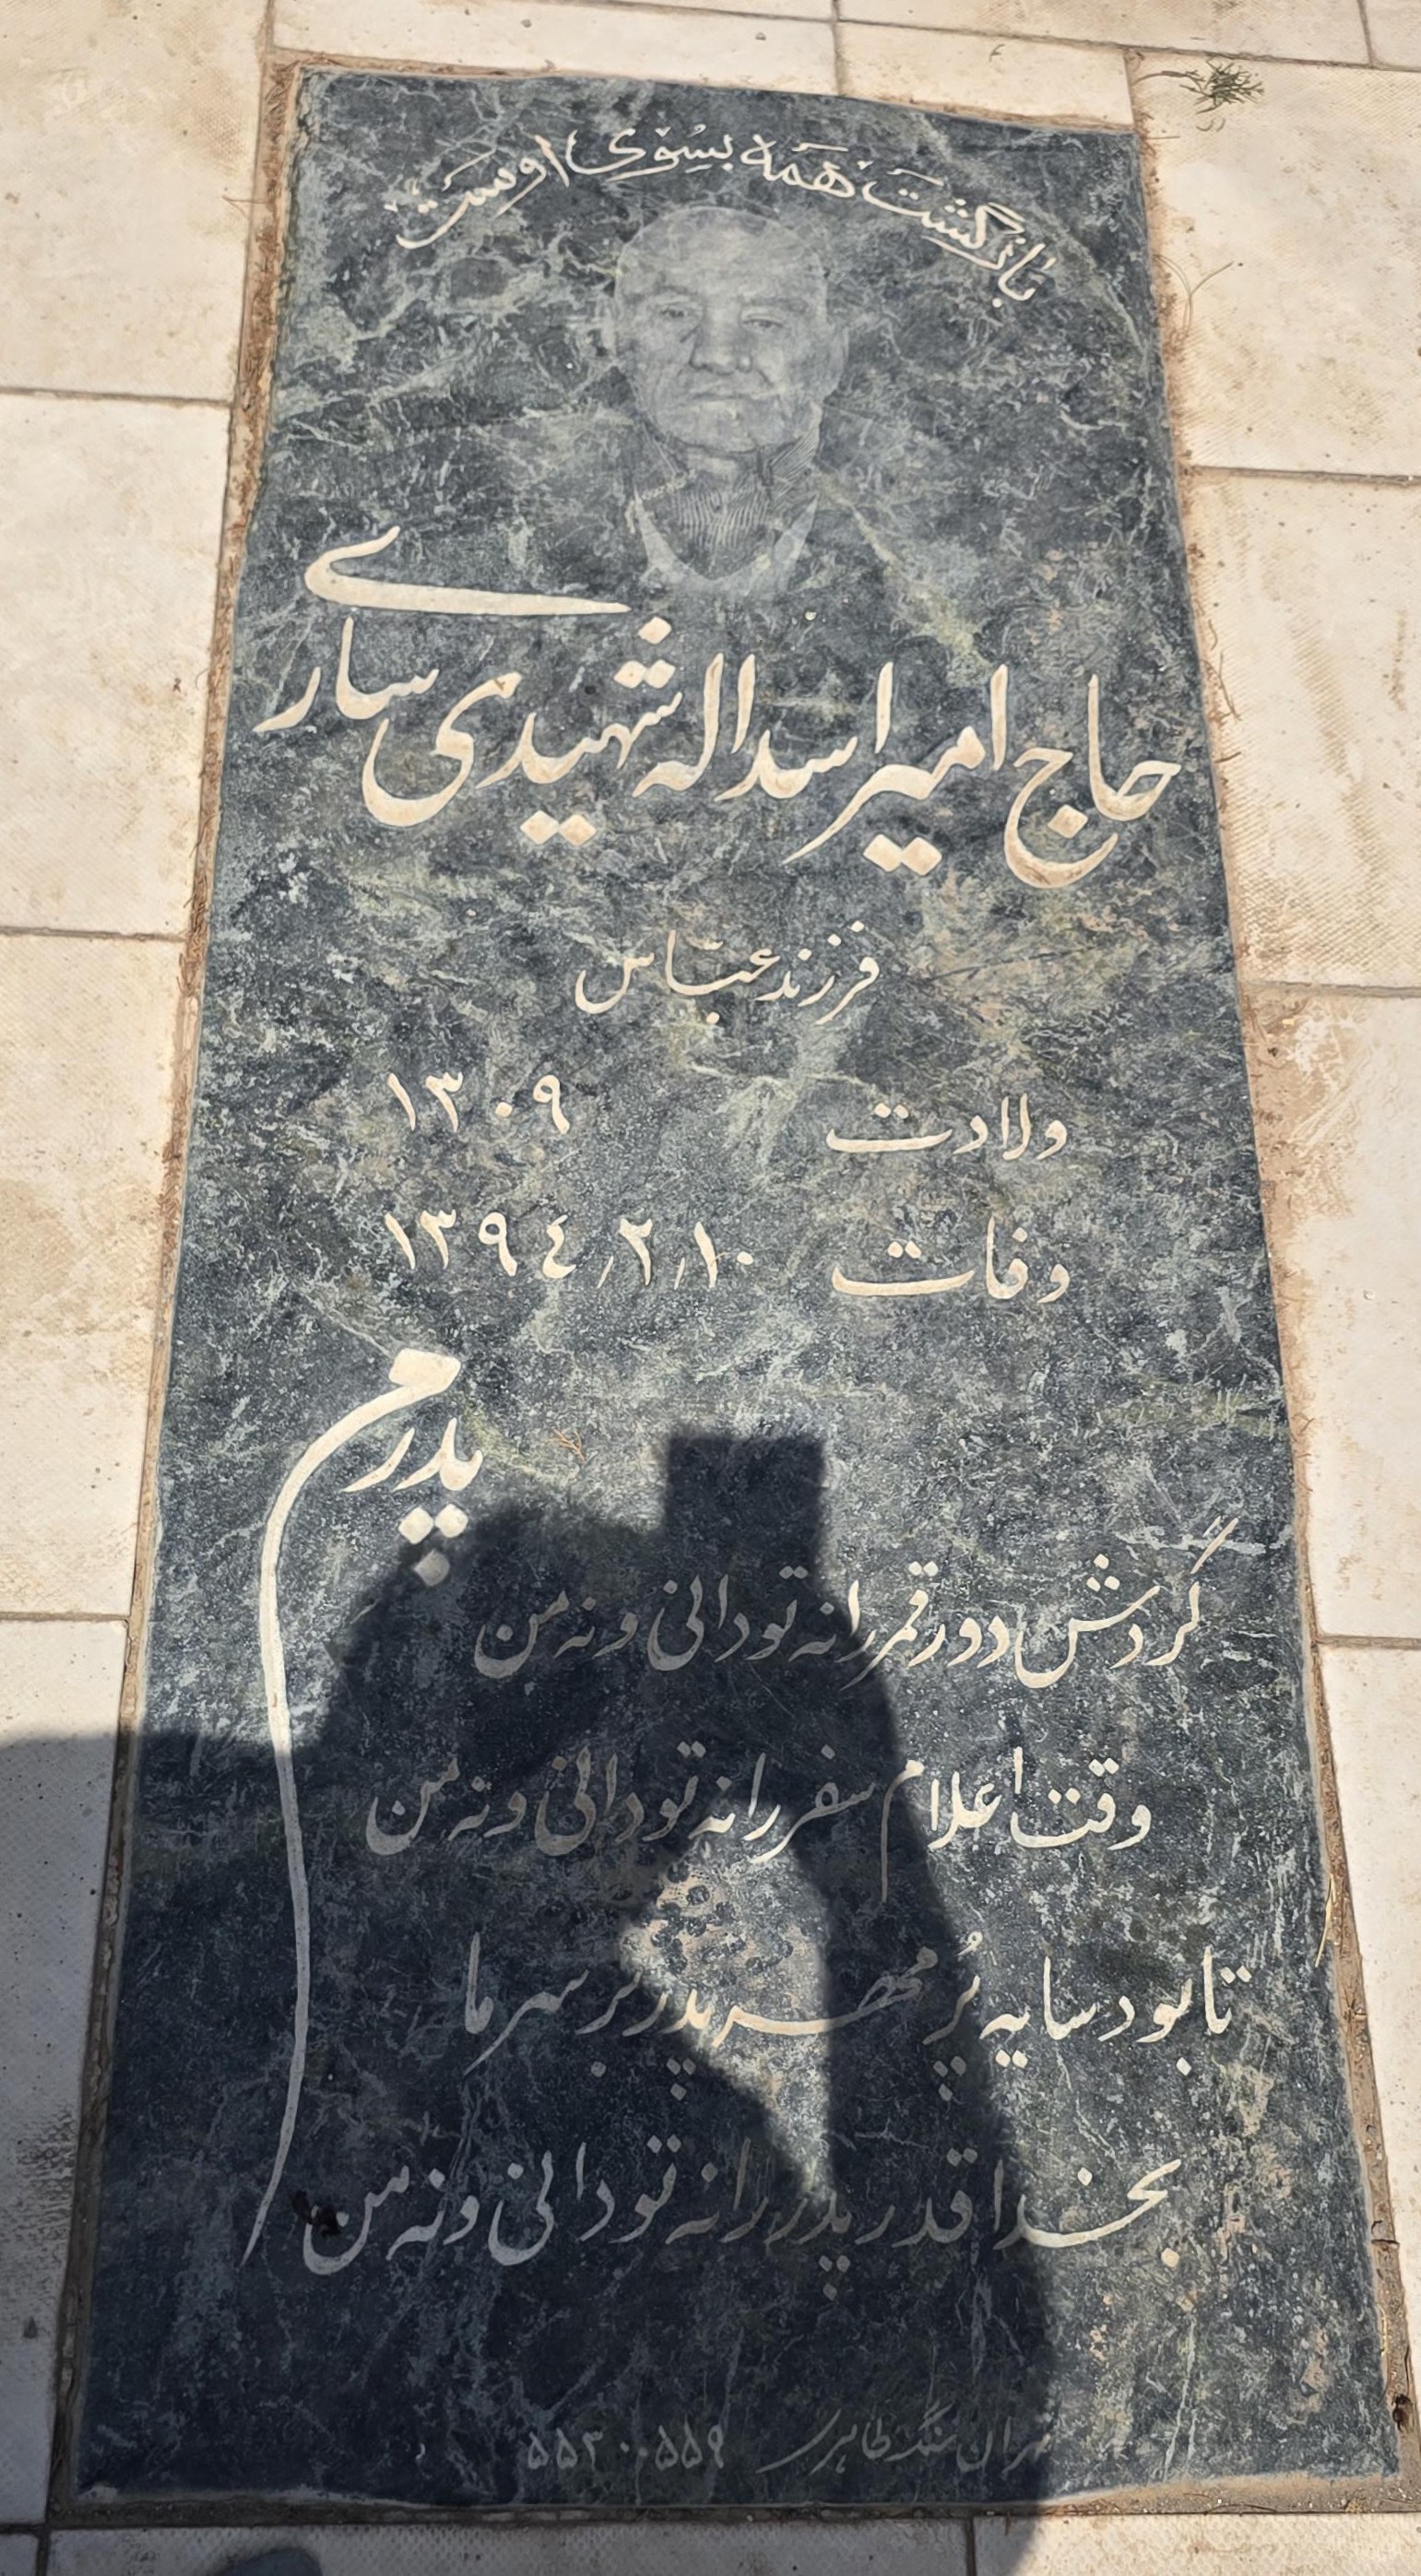 بازگشت همه بسوی اوست
حاج امیر اسداله شهیدی ساری
فرزند عباس
ولادت ۱۳۰۹
وفات ۱۳۹٤/۲/۱۰
پدرم
گردش دور قمر را نه تو دانی و نه من
وقت اعلام سفر را نه تو دانی و نه من
تا بود سایه پُر مهر پدر بر سر ما
بخدا قدر پدر را نه تو دانی و نه من
سنگ طاهری ۵۵۳۰۰۵۵۹